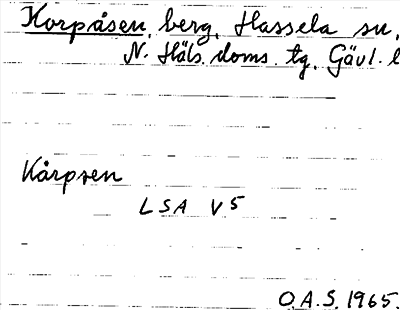 Korpåsen, berg, Hassela sn,
N. Häls. doms. tg, Gävl. l
Kårpsen
LSA V 5
O.A.S. 1965.